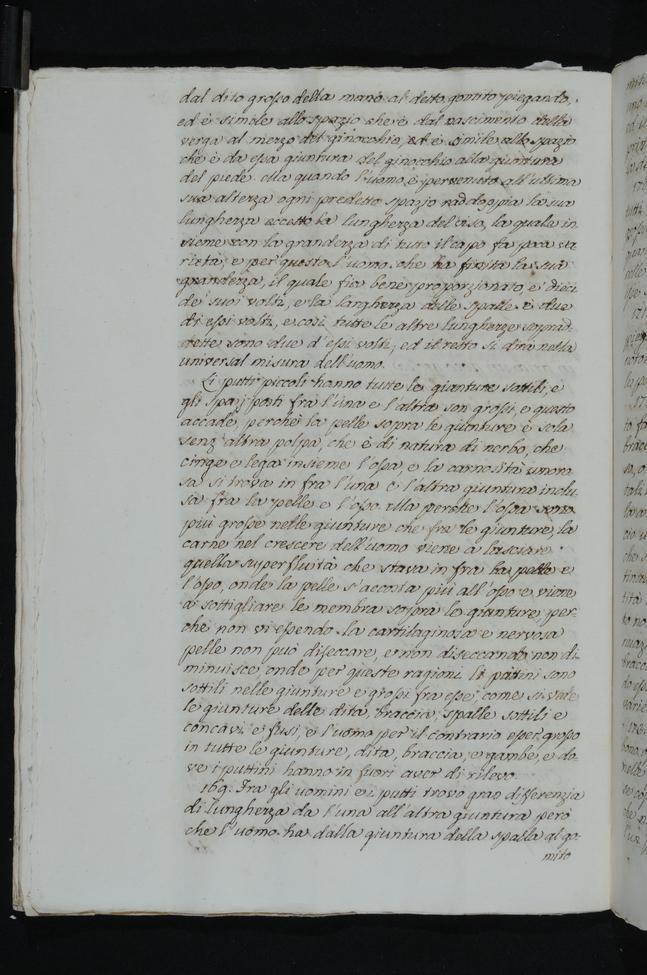 dal dito grosso della mano al detto gomito piegando,
ed è simile allo spazio che è dal nascimento della
verga al mezzo del ginocchio, ed è simile allo spazio
che è da essa giuntura del ginocchio alla giuntura
del piede. Ma quando l'uomo è pervenuto all'ultima
sua altezza ogni predetto spazio raddoppia la sua
lunghezza eccetto la lunghezza del viso, la quale in-
sieme con la grandezza di tuto il capo fa poca va-
rietà, e per questo l'uomo che ha finita la sua
grandezza, il quale fia bene proporzionato è dieci
de' suoi volti, e la larghezza delle spalle è due
di essi volti, e così tutte le altre lunghezze soprad-
dette sono due d'essi volti, ed il resto si dirà nella
universal misura dell'uomo.
Li putti piccoli hanno tutte le giunture sottili, e
gli spazj posti fra l'una e l'altra son grossi, e questo
accade, perchè la pelle sopra le giunture è sola
senz'altra polpa, che è di natura di nerbo, che
cinge e lega insieme l'ossa, e la carnosità umoro-
sa si trova in fra l'una e l'altra giuntura inclu-
sa fra la pelle e l'osso. Ma perche l'ossa sono
più grosse nelle giunture che fra le giunture, la
carne nel crescere dell'uomo viene a lasciare
quella superfluità che stava in fra la pelle e
l'osso, onde la pelle s'accosta più all'osso e viene
a sottigliare le membra sopra le giunture, per-
chè non vi essendo la cartilaginosa e nervosa
pelle non può diseccare, e non diseccando non di-
minuisce, onde per queste ragioni li puttini sono
sottili nelle giunture e grossi fra esse, come si vede
le giunture delle dita, braccia, spalle sottili e
concavi e fusi, e l'uomo per il contrario esser grosso
in tutte le giunture, dita, braccia, e gambe, e do-
ve i puttini hanno in fuori aver di rilevo.
169. Fra gli uomini e i putti trovo gran differenzia
di lunghezza da l'una all'altra giuntura però
che l'uomo ha dalla giuntura della spalla al go-
mito